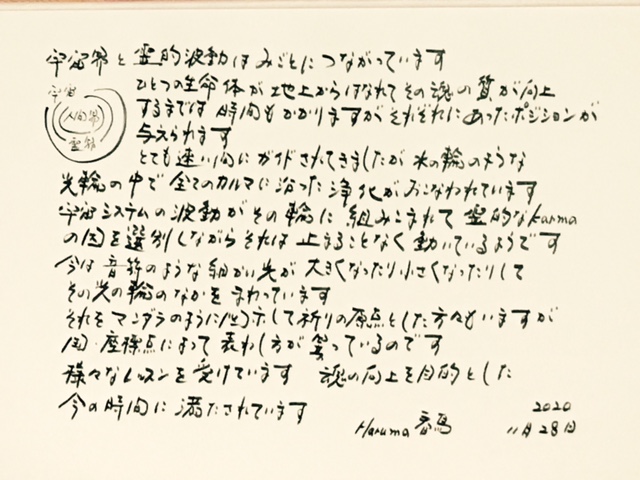 宇宙界と霊的波動はみごとにつながっています
ひとつの生命体が地上からはなれてその魂の質が向上
するまでは時間もかかりますがそれぞれにあったポジションが
与えられます
宇宙
人間界
霊界
とても速い間にガイドされてきましたが水の輪のような
光輪の中で全てのカルマに沿った浄化がおこなわれています
宇宙システムの波動がその輪に組みこまれて霊的なkarma
の図を選別しながらそれは止まることなく動いているようです
今は音符のような細かい光が大きくなったり小さくなったりして
その光の輪のなかをまわっています
それをマンダラのように図示して祈りの原点とした方々もいますが
図・座標点によって表わし方が異っているのです
様々なレッスンを受けています 魂の向上を目的とした
今の時間に満たされています
Haruma 2020
11月28日